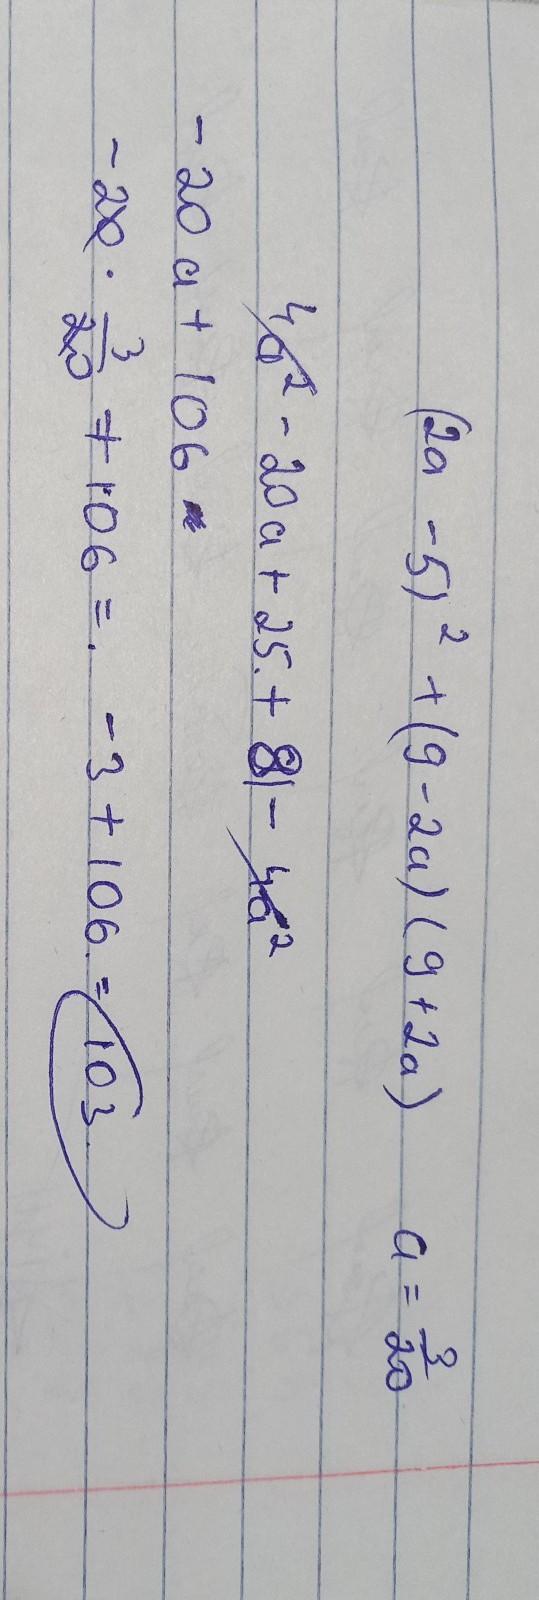 (2a - 5)² + (9 - 2a)(9 + 2a) a = 3/20
4a² - 20a + 25 + 81 - 4a²
- 20a + 106 =
- 20 · 3/20 + 106 = - 3 + 106 = 103